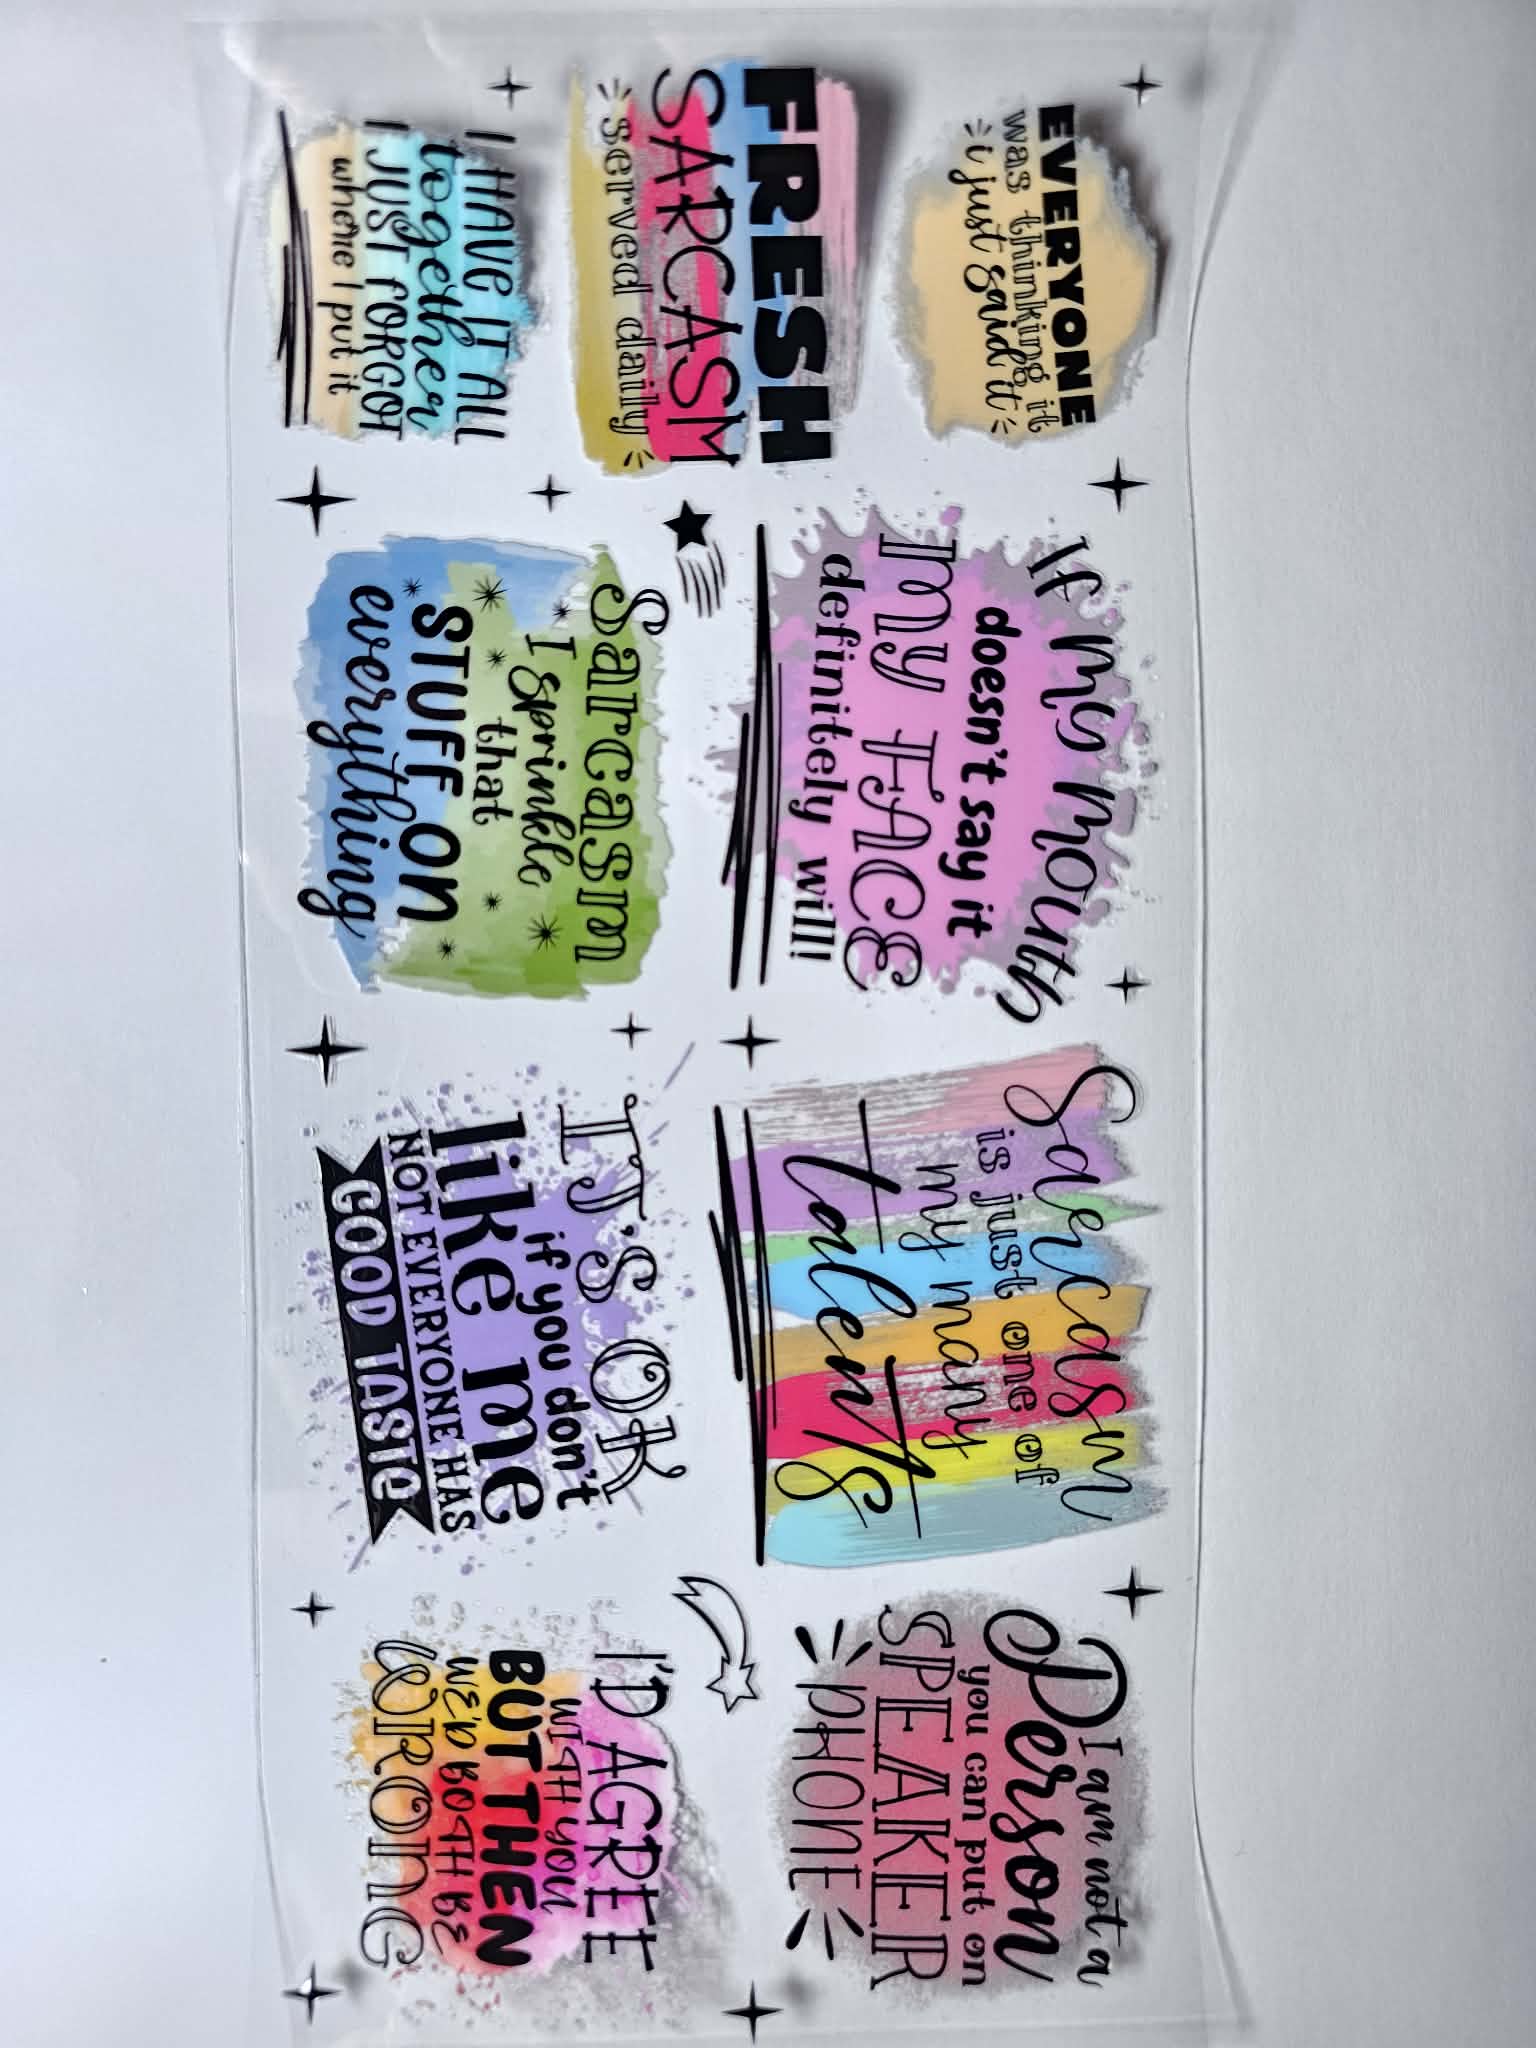 EVERYONE
was thinking it
i just said it
If my mouth
doesn't say it
my FACE
definitely will!
Sarcasm
is just one of
my many
talents
I am not a
Person
you can put on
SPEAKER
PHONE
FRESH
SARCASM
served daily
I HAVE IT ALL
together
I JUST FORGOT
where I put it
Sarcasm
I sprinkle
that
STUFF ON
everything
IT'S OK
if you don't
like me
NOT EVERYONE HAS
GOOD TASTE
I'D AGREE
WITH YOU
BUT THEN
WE'D BOTH BE
WRONG